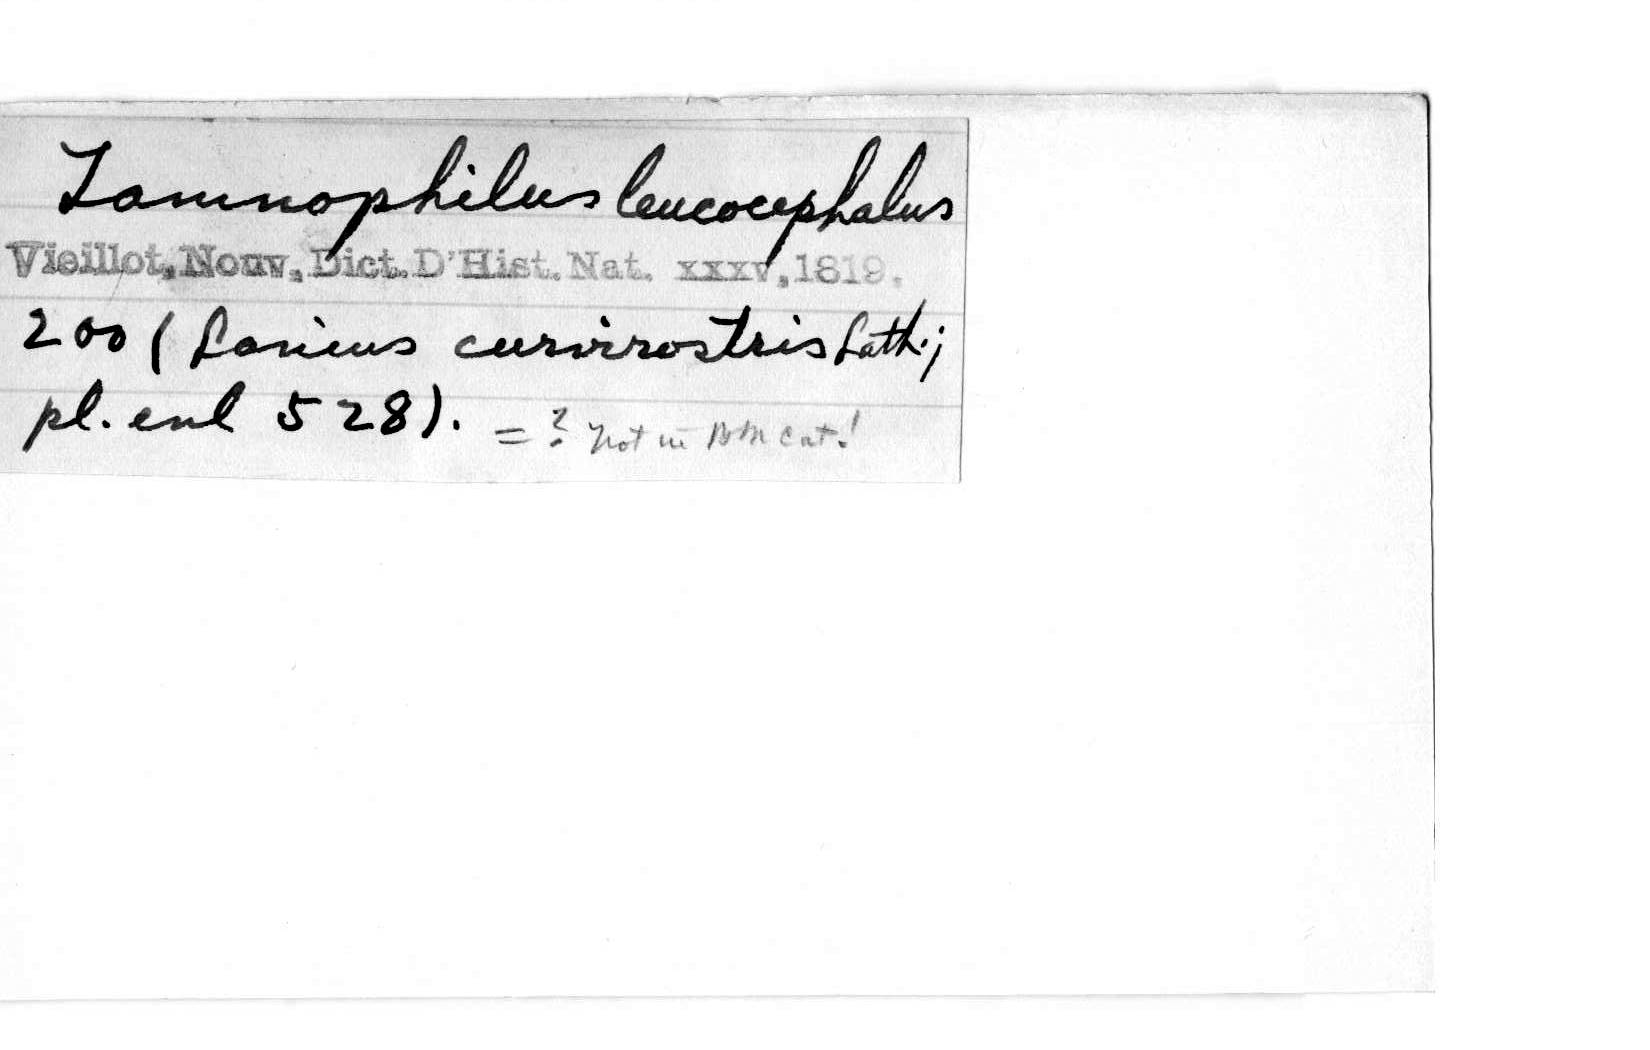 Tamnophilus leucocephalus
Vieillot, Nouv. Dict. D'Hist. Nat. xxxv, 1819.
200 (Lanius curvirostris Lath.;
pl. enl 528). =? Not in BM Cat.!